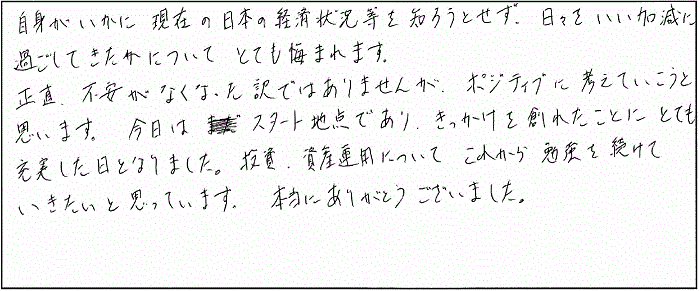 自身がいかに 現在の日本の経済状況等を知ろうとせず、日々をいい加減に
過ごしてきたかについて とても悔まれます。
正直、不安がなくなった訳ではありませんが、ポジティブに考えていこうと
思います。今日は スタート地点であり、きっかけを創れたことに とても
充実した日となりました。投資、資産運用について これから 勉強を続けて
いきたいと思っています。本当にありがとうございました。